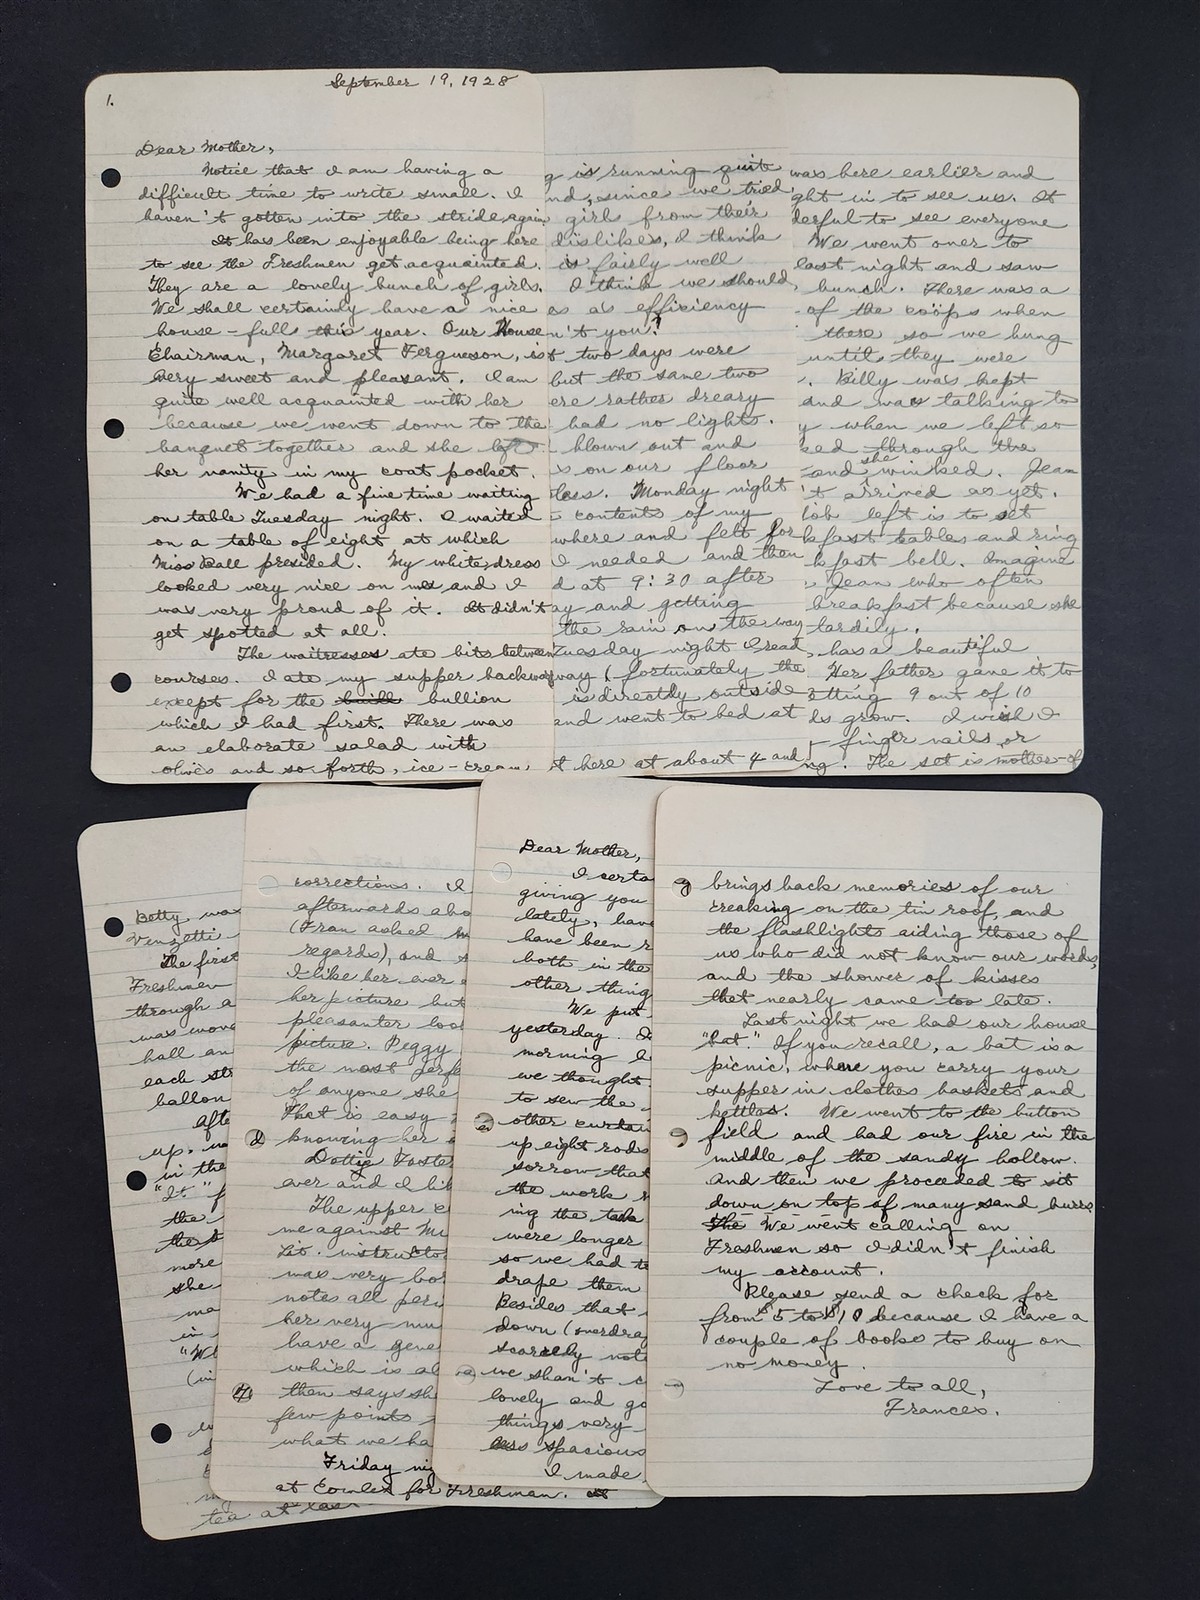 September 19, 1928
1.
Dear Mother,
Notice that I am having a
difficult time to write small. I
haven't gotten into the stride again.
It has been enjoyable being here
to see the Freshmen get acquainted.
They are a lovely bunch of girls.
We shall certainly have a nice
house-full this year. Our House
Chairman, Margaret Ferguson, is
very sweet and pleasant. I am
quite well acquainted with her
because we went down to the
banquet together and she left
her vanity in my coat pocket.
We had a fine time waiting
on table Tuesday night. I waited
on a table of eight at which
Miss Ball presided. My white dress
looked very nice on me and I
was very proud of it. It didn't
get spotted at all.
The waitresses ate bits between
courses. I ate my supper backward
except for the bullion
which I had first. There was
an elaborate salad with
olives and so forth, ice-cream,
g is running quit
nd, since we tried
girl from their
dislikes, I think
is fairly well
I think we should,
as as efficiency
n't you?
t two days were
but the same two
ere rather dreary
had no lights.
blown out and
s on our floor
tless. Monday night
contents of my
where and felt for
I needed and then
d at 9:30 after
ay and getting
the rain on the way
Tuesday night I read
way (fortunately the
is directly outside
and went to bed at
t here at about 4 and
was here earlier and
ght in to see us. It
derful to see everyone
We went over to
last night and saw
bunch. There was a
of the coops when
there so we hung
until they were
. Billy was kept
and was talking to
y when we left so
ked through the
and she winked. Jean
't arrived as yet.
job left is to set
kfast tables and ring
kfast bell. Imagine
Jean who often
breakfast because she
tardily.
has a beautiful
Her father gave it to
etting 9 out of 10
ls grow. I wish I
finger nails or
ng. The set is mother-of
Betty was
Venzetti
The first
Freshmen
through a
was won
hall an
each str
ballon
afte
up, w
in the
"It" f
the
the
more
she
ma
in
"W
(in
tea at last
corrections. I
afterwards abo
(Fran asked m
regards), and s
I like her ever
her picture but
pleasanter loo
picture. Peggy
the most perfe
of anyone she
That is easy
knowing her
Dottie Foster
ever and I lik
The upper c
me against Mi
Lit. instructo
was very bor
notes all peri
her very mu
have a gene
which is al
then says sh
few points
what we ha
Friday nig
at Cowles for Freshman. It
Dear Mother,
I certa
giving you
lately, have
have been r
both in the
other thing
We put
yesterday. D
morning I
we thought
to sew the
other curtain
up eight rods
sorrow that
the work
ing the task
were longer
so we had to
drape them
Besides that
down (overdra
scarcely not
we shan't c
lovely and go
things very
ours spacious
I made
brings back memories of our
creaking on the tin roof, and
the flashlights aiding those of
us who did not know our words,
and the shower of kisses
that nearly came too late.
Last night we had our house
"bat." If you recall, a bat is a
picnic, where you carry your
supper in clothes baskets and
kettles. We went to the button
field and had our fire in the
middle of the sandy hollow.
And then we proceeded to sit
down on top of many sand burrs
The We went calling on
Freshmen so I didn't finish
my account.
Please send a check for
from $5 to $10 because I have a
couple of books to buy on
no money.
Love to all,
Frances.